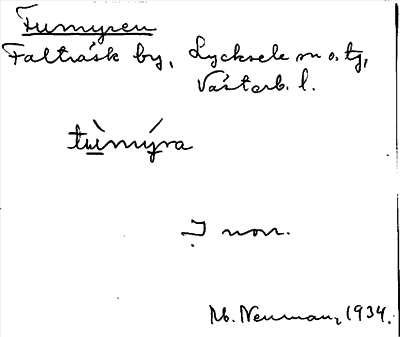 Tumyren
Falträsk by, Lycksele sn o. tg,
Västerb. l.
tùmýra
I non.
Mb. Neuman, 1934.